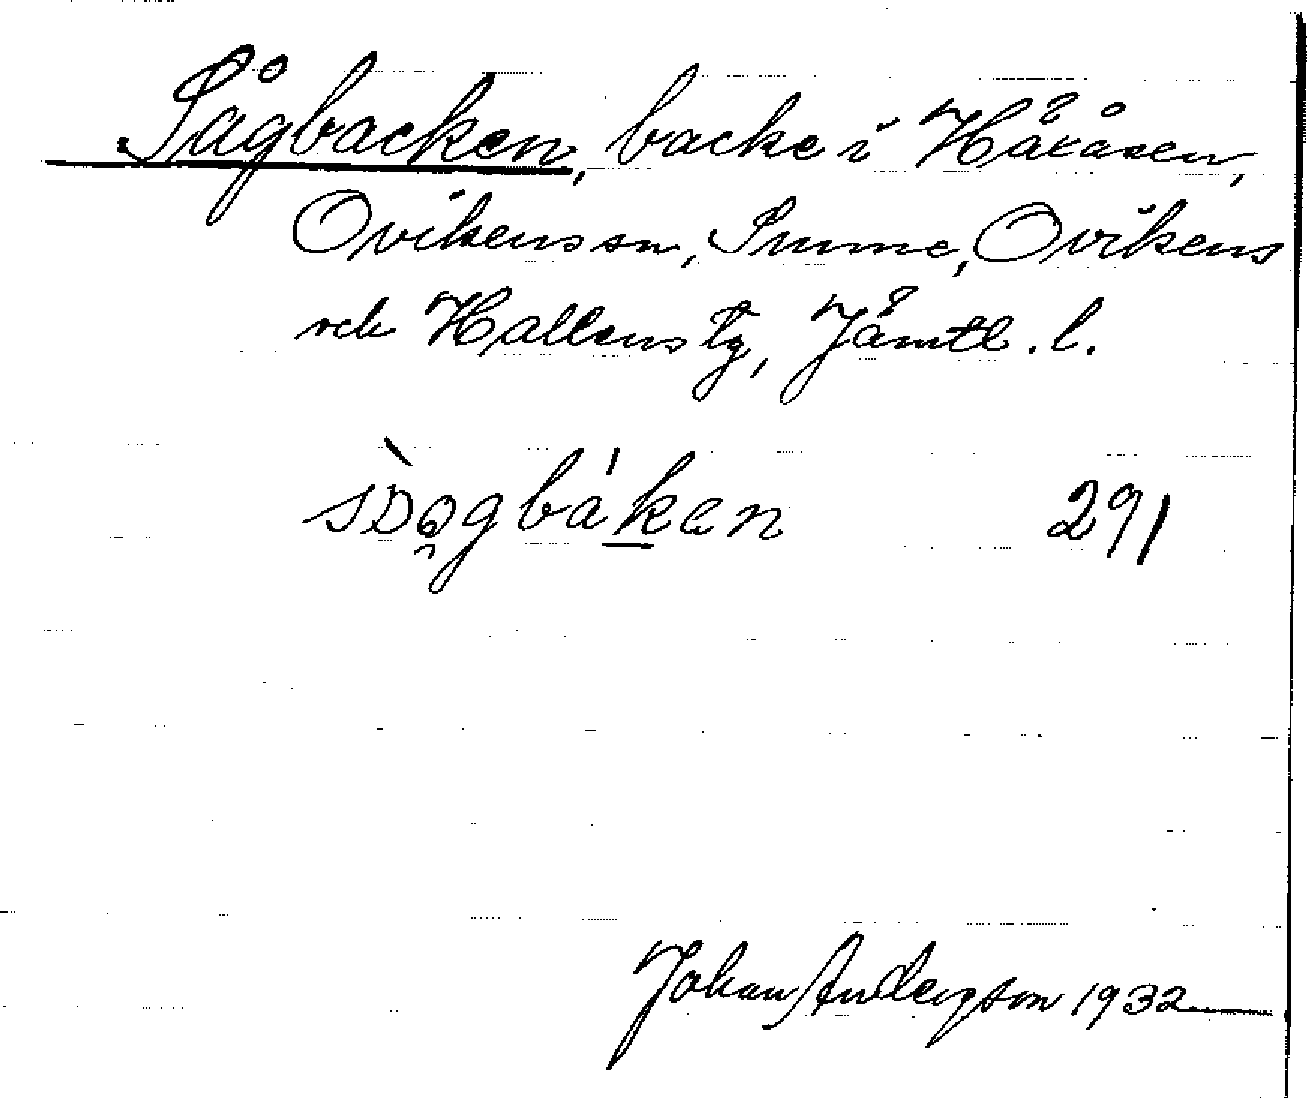 Sågbacken, backe i Håkåsen,
Ovikens sn, Sunne, Ovikens
och Hallens tg, Jämtl. l.
291
Johan Anderson 1932